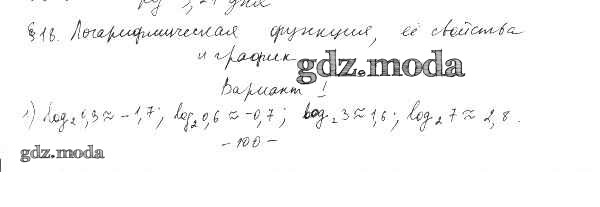 §18. Логарифмическая функция, её свойства
и график
gdz.moda
Вариант 1
1) log₂0,3≈-1,7; log₂0,6≈-0,7; log₂3≈1,6; log₂7≈2,8.
-100-
gdz.moda